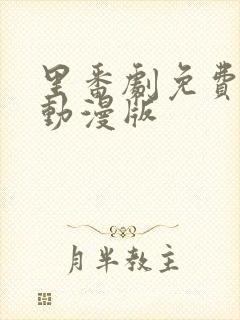 里番劇免費
動漫版
月半教主